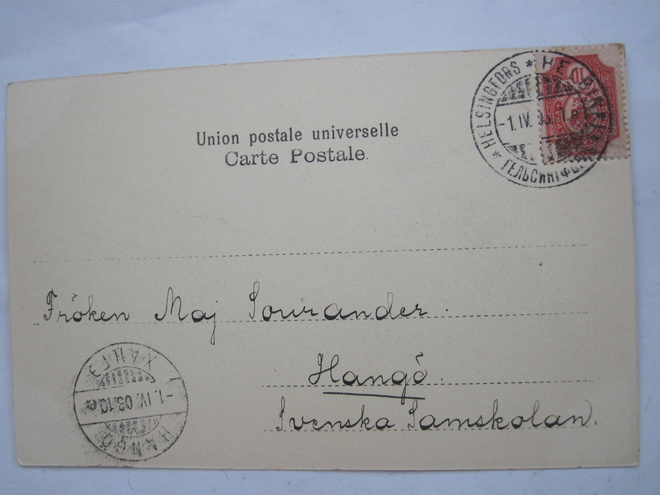 Union postale universelle
Carte Postale.
HELSINGFORS * HE
-1.IV.03
* ГЕЛЬСИНГФ
10
Fröken Maj Sourander.
Hangö.
Svenska Samskolan.
ХАНГЭ
-1.IV.03.10
HANGÖ